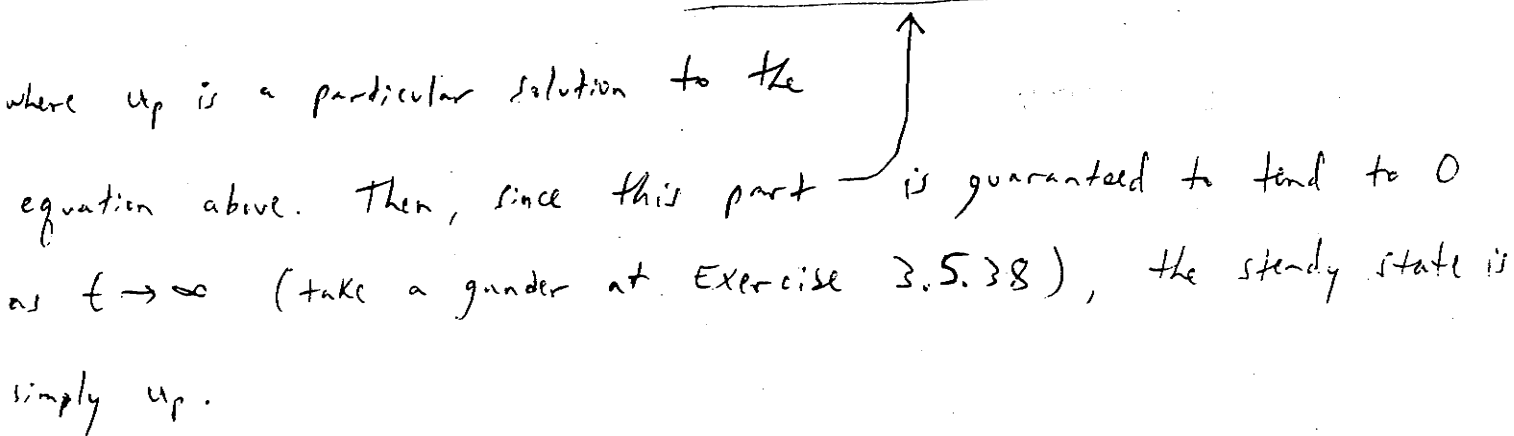 where up is a particular solution to the
equation above. Then, since this part is guaranteed to tend to 0
as t → ∞ (take a gander at Exercise 3.5.38), the steady state is
simply up.